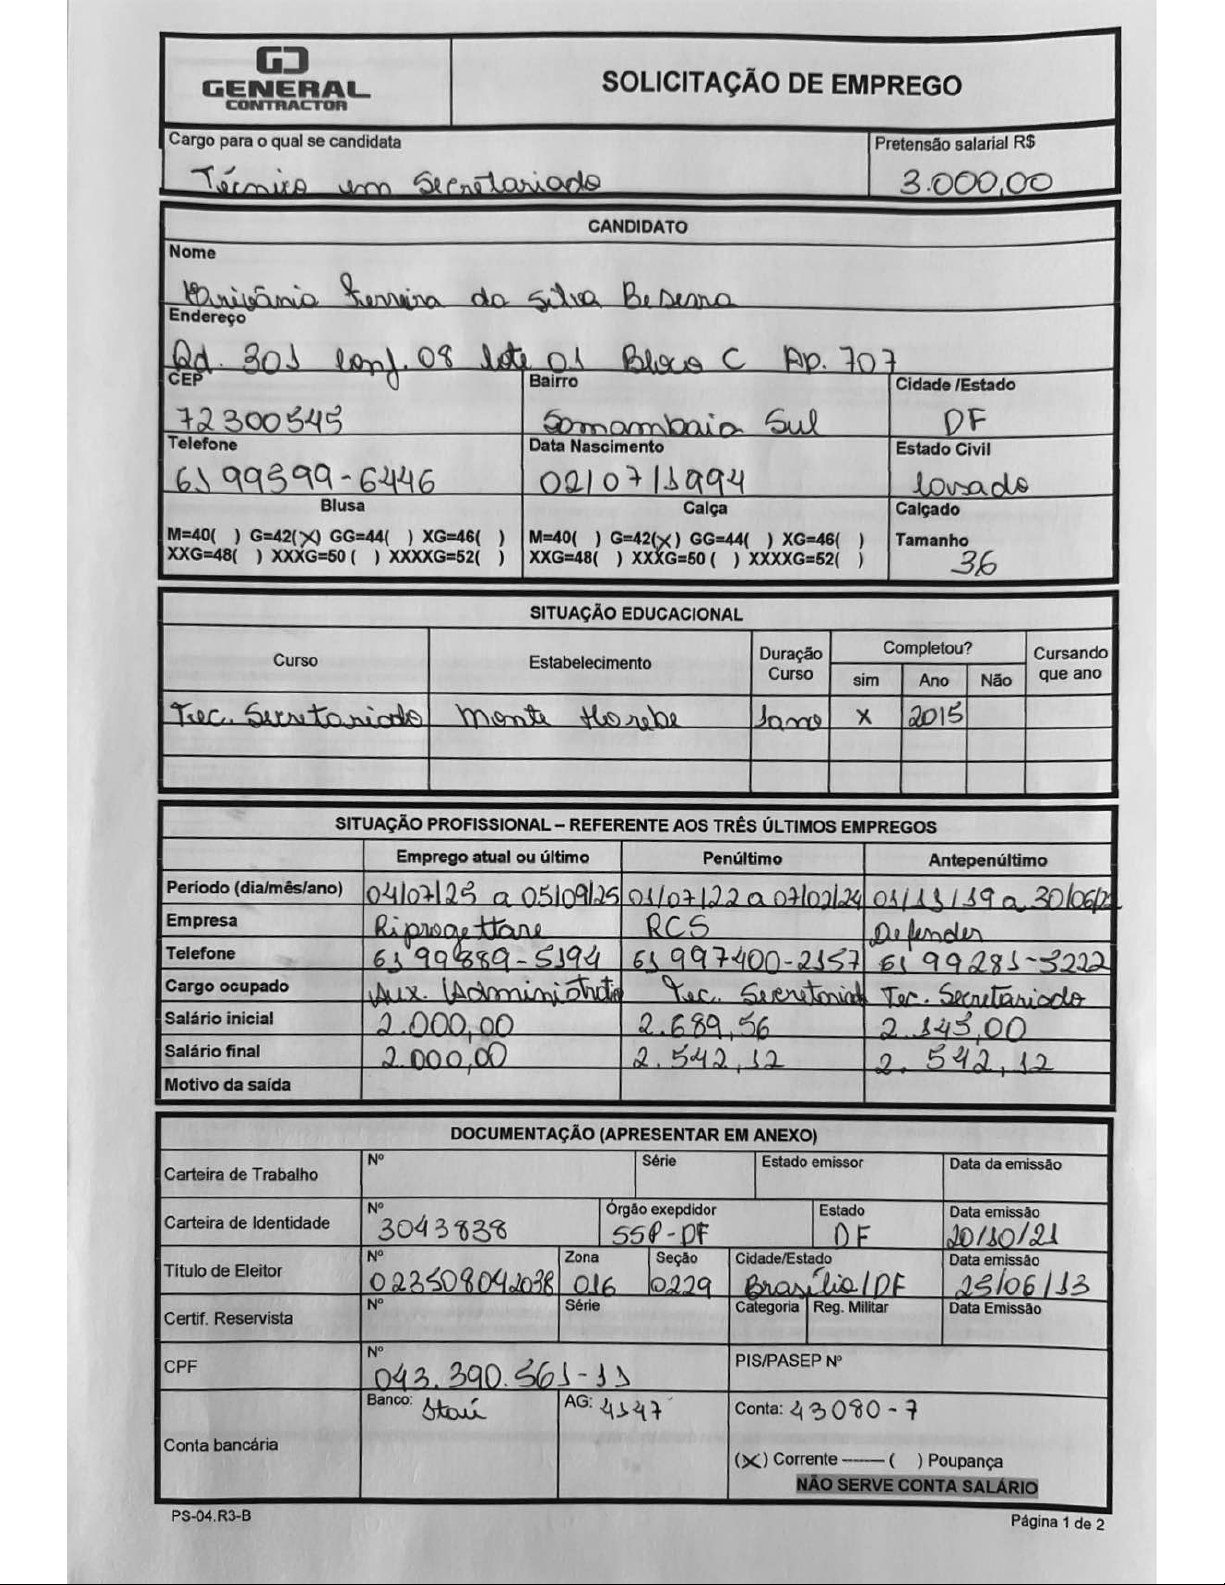 GENERAL
CONTRACTOR
SOLICITAÇÃO DE EMPREGO
Cargo para o qual se candidata
Pretensão salarial R$
Técnico em Secretariado
3.000,00
CANDIDATO
Nome
Ferreira da Silva Beserra
Endereço
Qd. 301 Conj. 08 lote 01 Bloco C Ap. 707
CEP
Bairro
Cidade /Estado
72300545
Samambaia Sul
DF
Telefone
Data Nascimento
Estado Civil
61 99599-6446
02/07/1994
Casado
Blusa
Calça
Calçado
M=40( ) G=42(X) GG=44( ) XG=46( )
M=40( ) G=42(X) GG=44( ) XG=46( )
Tamanho
XXG=48( ) XXXG=50 ( ) XXXXG=52( )
XXG=48( ) XXXG=50 ( ) XXXXG=52( )
36
SITUAÇÃO EDUCACIONAL
Curso
Estabelecimento
Duração
Curso
Completou?
Cursando
que ano
sim
Ano
Não
Tec. Secretariado
Monte Horebe
1ano
X
2015
SITUAÇÃO PROFISSIONAL – REFERENTE AOS TRÊS ÚLTIMOS EMPREGOS
Emprego atual ou último
Penúltimo
Antepenúltimo
Período (dia/mês/ano)
04/07/25 a 05/09/25
01/07/22 a 07/02/24
01/11/19 a 30/06/
Empresa
Riprogettare
RCS
Defender
Telefone
61 99889-5194
61 997400-2157
61 99281-3222
Cargo ocupado
Aux. Administrativo
Tec. Secretariad
Tec. Secretariado
Salário inicial
2.000,00
2.689,56
2.145,00
Salário final
2.000,00
2.542,12
2.542,12
Motivo da saída
DOCUMENTAÇÃO (APRESENTAR EM ANEXO)
Carteira de Trabalho
Nº
Série
Estado emissor
Data da emissão
Carteira de Identidade
Nº
Órgão exepdidor
Estado
Data emissão
3043838
SSP-DF
DF
20/10/21
Título de Eleitor
Nº
Zona
Seção
Cidade/Estado
Data emissão
023508042038
016
0229
Brasília/DF
25/06/13
Certif. Reservista
Nº
Série
Categoria
Reg. Militar
Data Emissão
CPF
Nº
043.390.561-11
PIS/PASEP Nº
Conta bancária
Banco: Itaú
AG: 4147
Conta: 43080-7
(X) Corrente -------- ( ) Poupança
NÃO SERVE CONTA SALÁRIO
PS-04.R3-B
Página 1 de 2